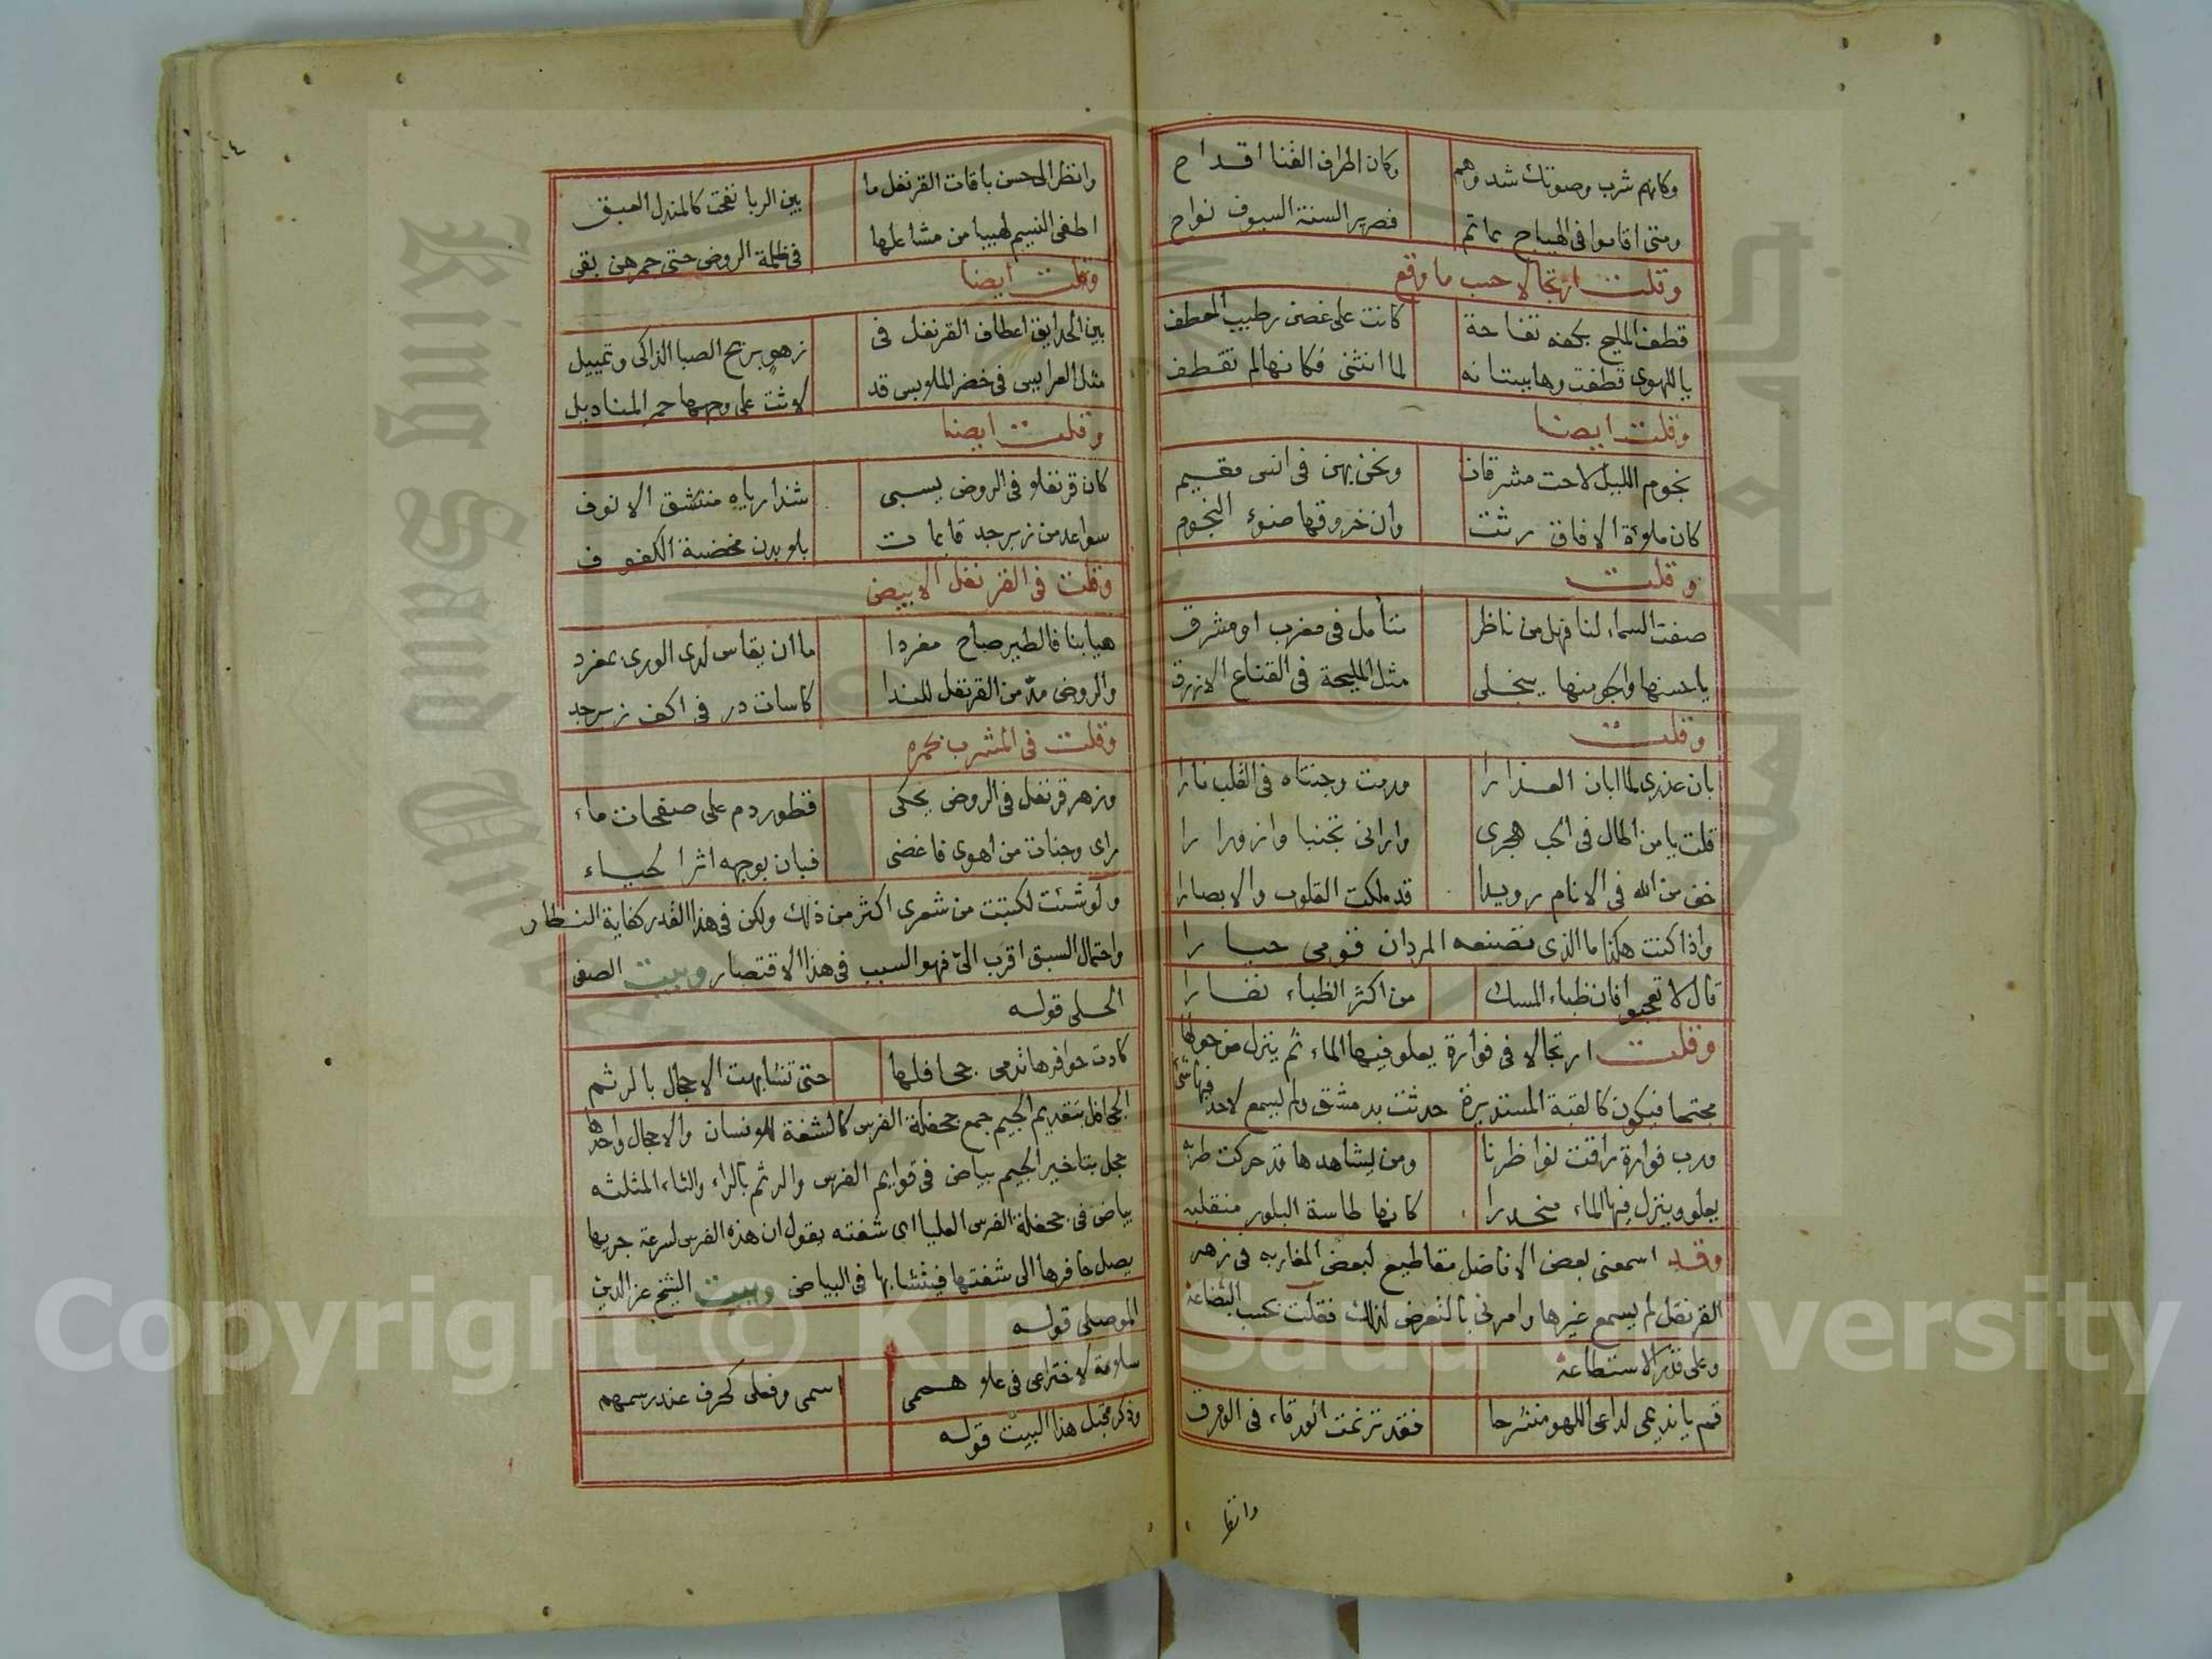 وكانهم شرب وصوتك شدوهم وكان اطراف القنا اقداح
ومتى اقاموا في الهياج مماتم فصرير السنة السيوف نواح
وقلت ارتجالا حسب ما وقع
قطف المليح بكفه تفاحة كانت على غصن رطيب المعطف
يا للهوى قطفت وهابستانه لما انثنى فكانها لم تقطف
وقلت ايضا
نجوم الليل لاحت مشرقات ونحن بهن في انس مقيم
كان ملاءة الافاق رثت وان خروقها ضوء النجوم
وقلت
صفت السماء لنا فهل من ناظر متأمل في مغرب او مشرق
يا حسنها والجو منها ينجلي مثل المليحة في القناع الازرق
وقلت
بان عذري لما ابان العذارا ورمت وجنتاه في القلب نارا
قلت يا من اطال في الحب هجري واراني تجنبا وازورارا
خف من الله في الانام رويدا قد ملكت القلوب والابصارا
واذا كنت هكذا ما الذي تصنعه المردان فقومي حيارا
قال لا تعجبوا فان ظباء المسك من اكثر الظباء نفارا
وقلت ارتجالا في فوارة يعلو فيها الماء ثم ينزل من حولها
مجتمعا فيكون كالقبة المستديرة حدثت بدمشق ولم يسمع لاحد فيها شئ
ورب فوارة راقت نواظرنا ومن يشاهدها قد حركت طربه
يعلو وينزل فيها الماء منحدرا كانها طاسة البلور منقلبه
وقد اسمعني بعض الافاضل مقاطيع لبعض المغاربه في زهر
القرنفل لم يسمع غيرها وامرني بالتعرض لذلك فقلت بحسب البضاعة
وعلى قدر الاستطاعة
قم يا نديمي لداعي اللهو منشرحا فقد ترنمت الورقاء في الورق
وانظر
وانظر الى حسن باقات القرنفل ما بين الربا نفحت كالمندل العبق
اطفى النسيم لهيبا من مشاعلها في ظلمة الروض حتى جمرهن بقى
وقلت ايضا
بين الحدايق اعطاف القرنفل في زهو بريح الصبا الذاكي وتمييل
مثل العرايس في خضر الملابس قد لاثت على وجهها حمر المناديل
وقلت ايضا
كان قرنفلا في الروض يسبى شذا رياه منتشق الانوف
سواعد من زبرجد قايمات بلا بدن مخضبة الكفوف
وقلت في القرنفل الابيض
هيا بنا فالطير صاح مغردا ما ان يقاس لدى الورى بمغرد
والروض مد من القرنفل للندا كاسات در في اكف زبرجد
وقلت في المشرب بحمرة
وزهر قرنفل في الروض يحكى قطور دم على صفحات ماء
راى وجنات من اهوى فاغضى فبان بوجهه اثر الحياء
ولو شئت لكتبت من شعرى اكثر من ذلك ولكن في هذا القدر كفاية النظار
واحتمال السبق اقرب الىّ فهو السبب في هذا الاقتصار وبيت الصفى
الحلى قوله
كادت حوافرها تدمى جحافلها حتى تشابهت الاحجال بالرثم
الجحافل بتقديم الجيم جمع جحفلة الفرس كالشفة للانسان والاحجال واحدها
حجل بتاخير الجيم بياض في قوايم الفرس والرثم بالراء والثاء المثلثه
بياض في جحفلة الفرس العليا اى شفته يقول ان هذه الفرس لسرعة جريها
يصل حافرها الى شفتها فيتشابها في البياض وبيت الشيخ عز الدين
الموصلي قوله
سلامة لاختراعي في علا هممي اسمى وفعلى كحرف عند رسمهم
وذكر قبل هذا البيت قوله
Copyright © King Saud University